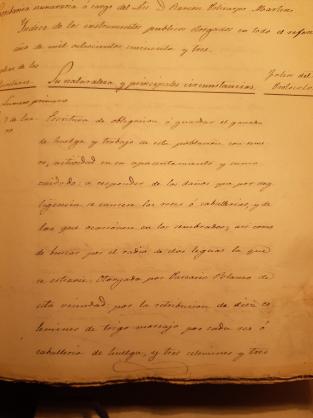 Escribanía numeraria a cargo del Sr. D. Ramon Martin
Indice de los instrumentos publicos otorgados en todo el
año de mil ochocientos cincuenta y tres.
Su naturaleza y principales circunstancias.
Folio del
Protocolo
Numero primero
Escritura de obligacion á guardar el ganado
de huelga y trabajo de esta poblacion con esme
ro, actividad en su apacentamiento y sumo
cuidado: a responder de los daños que por neg
ligencia se causen las reses ó caballerias, y de
los que ocasionen en los sembrados, asi como
de buscar por el radio de dos leguas la que
se estravie. Otorgada por Polanco de
esta vecindad por la retribucion de diez ce
lemines de trigo morcajo por cada res ó
caballeria de huelga, y tres celemines y tres